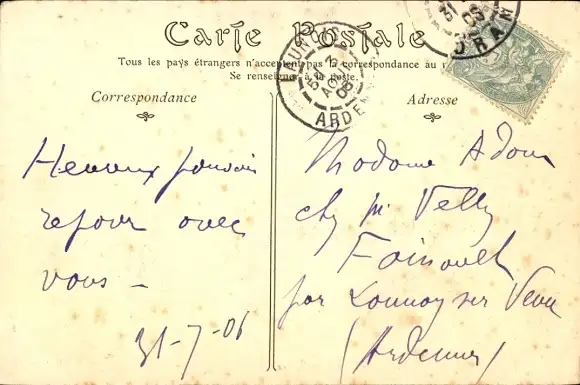 Carte Postale
Tous les pays étrangers n'acceptent pas la correspondance au r
Se renseigner à la poste.
Correspondance
Adresse
ARDEN
ORAN
AOUT
Heureux pouvoir
vous –
31-7-06
Madame Adam
chez M. Velly
par Launoy sur Vence
(Ardennes)